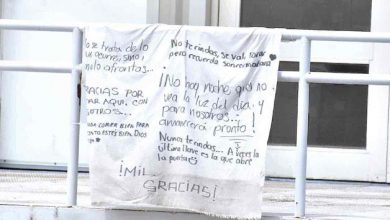 se trata de lo
ocurre, sino
como lo afrontas...
GRACIAS POR
ESTAR AQUI, CON
NOSOTROS...
No te rindas, se val, llorar
pero recuerda sonreir mañana
¡No hay noche, que no
vea la luz del dia, y
para nosotros...
amanecerá pronto!
Nunca te rindas... A veces la
última llave es la que abre
la puerta
¡MIL
GRACIAS!